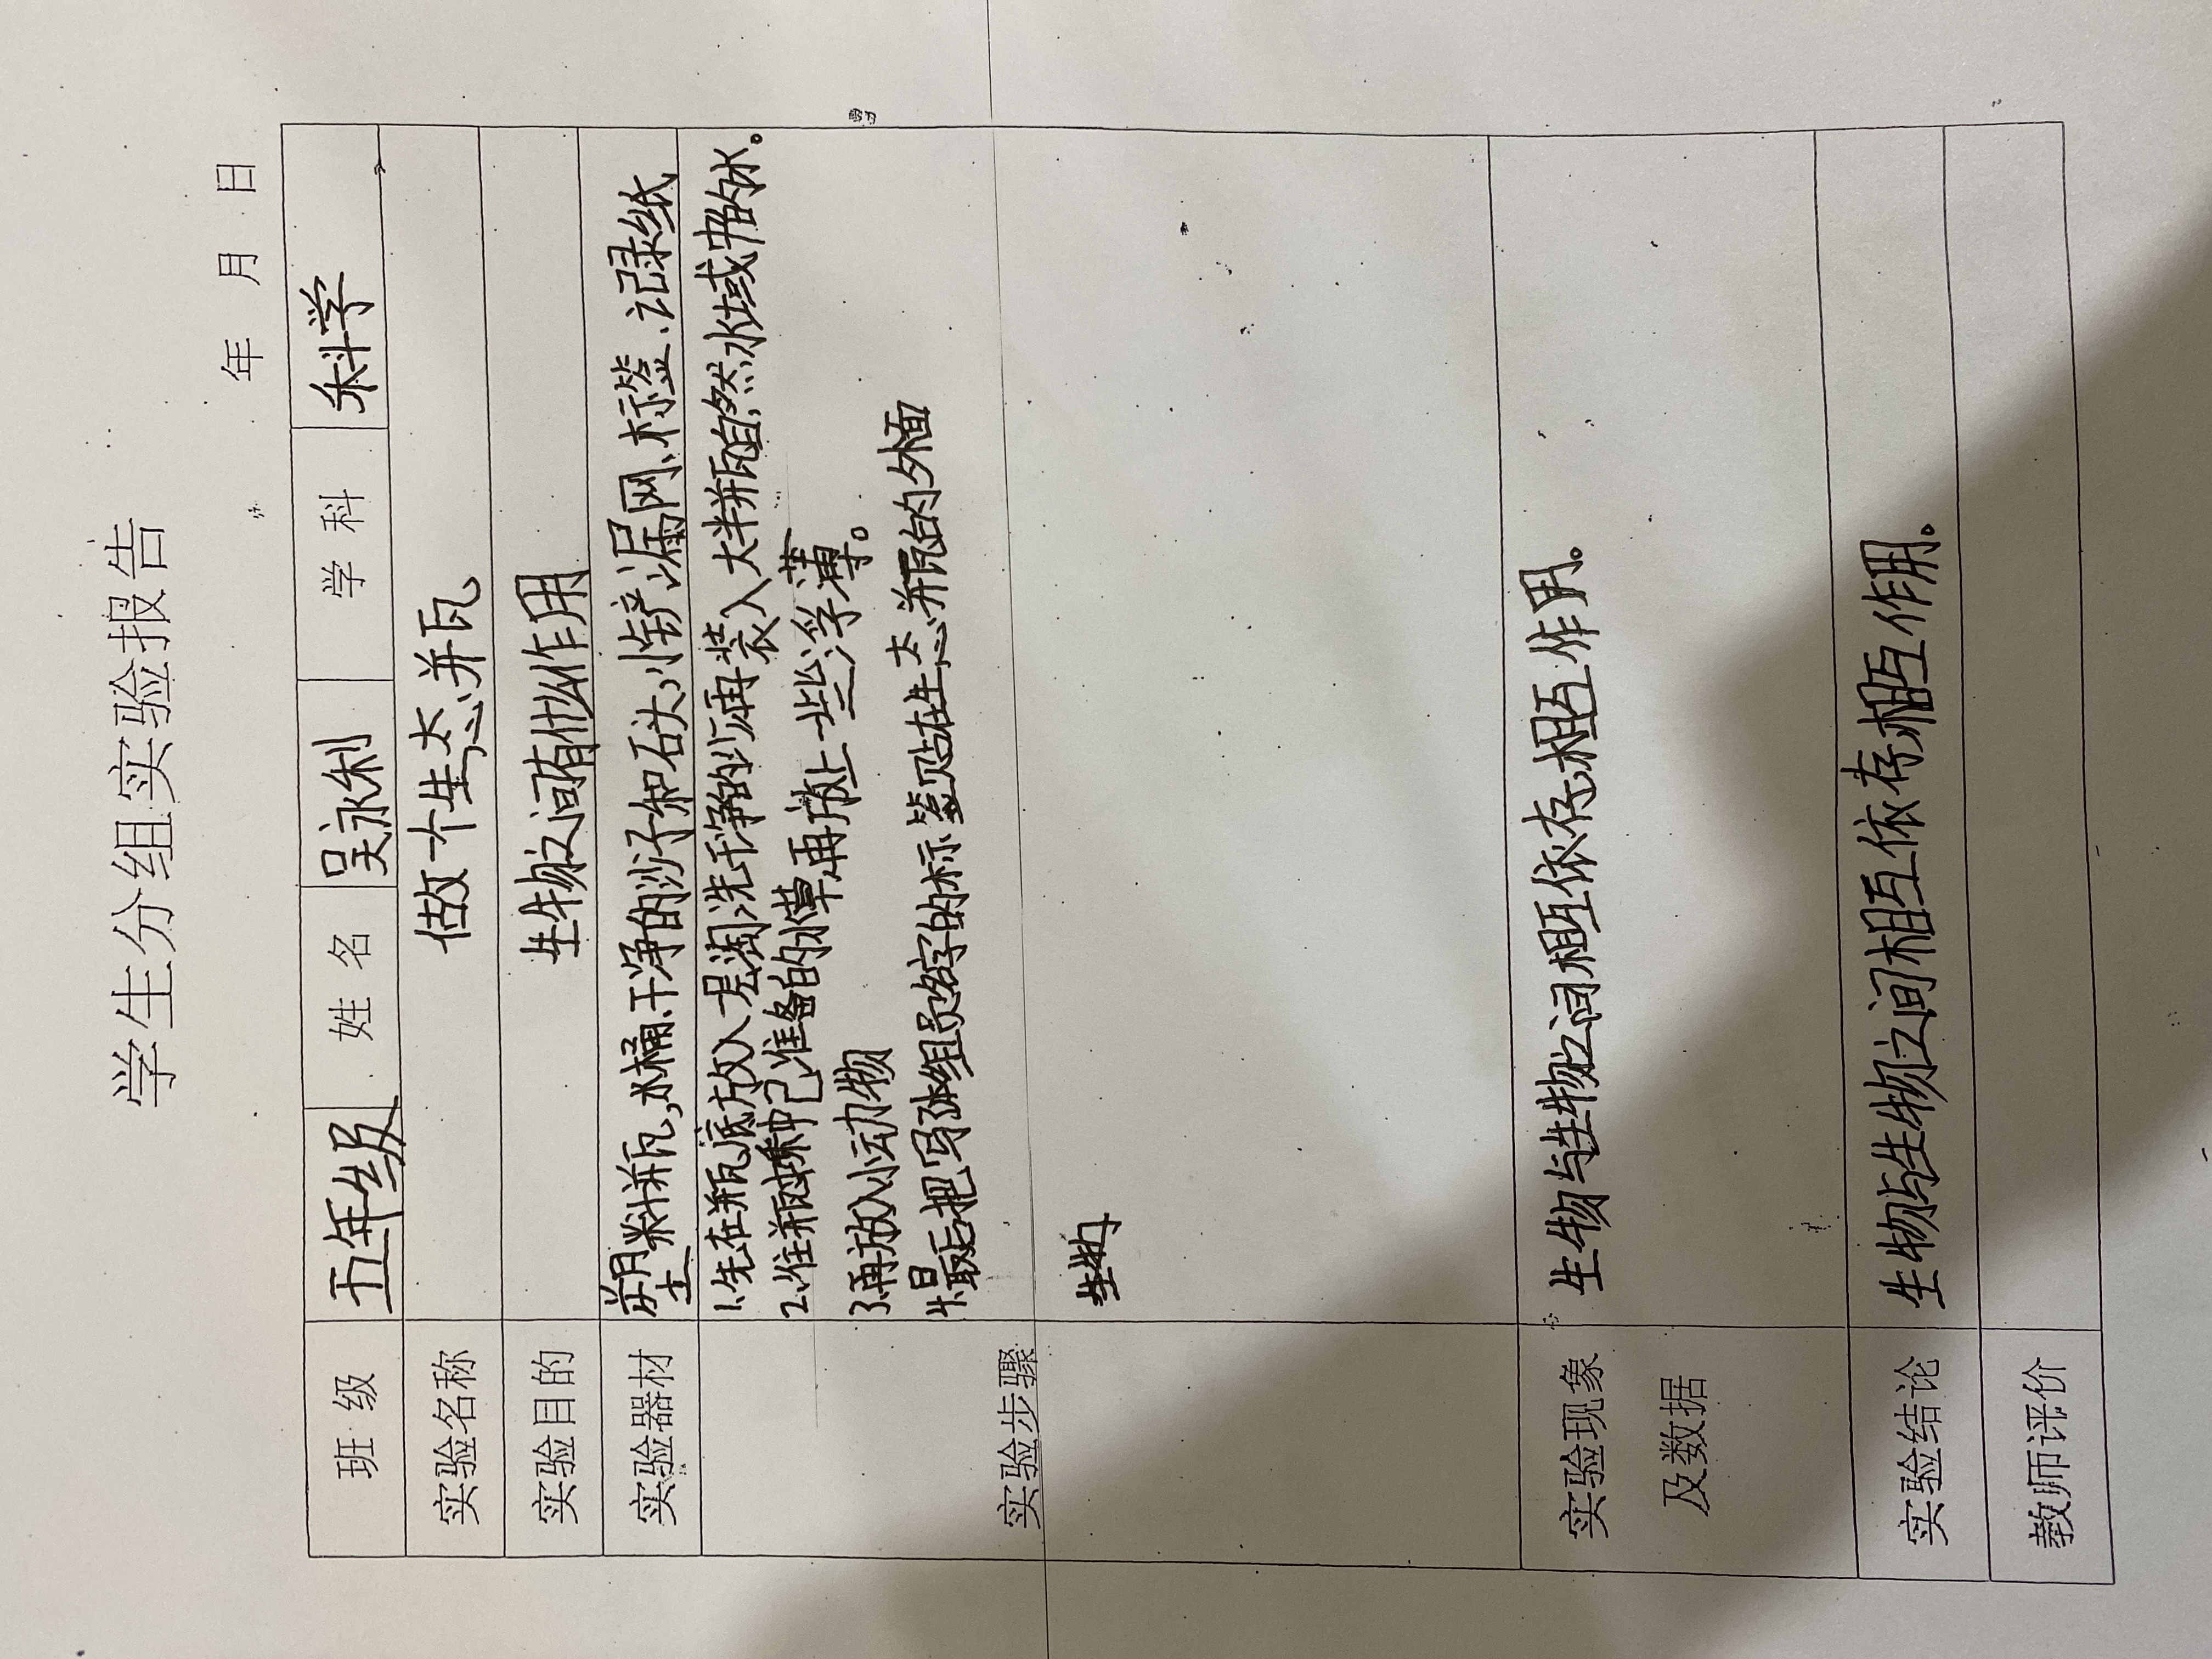 学生分组实验报告
年 月 日
班 级 五年级 姓 名 吴永利 学 科 科学
实验名称 做个生态瓶
实验目的 生物之间有什么作用
实验器材 塑料瓶,水桶、干净的沙子和石头,小铲、漏网、标签、记录纸
1、先在瓶底放入一层淘洗干净的沙,再装入大半瓶自然水域或里的水。
2、往瓶里种已准备的水草再放上一些浮薄。
3、再放入小动物
4、最后把写张组员名字的标签贴在生态瓶的外面
实验步骤
实验现象
及数据
生物与生物之间相互依存,相互作用。
实验结论 生物与生物之间相互依存,相互作用。
教师评价